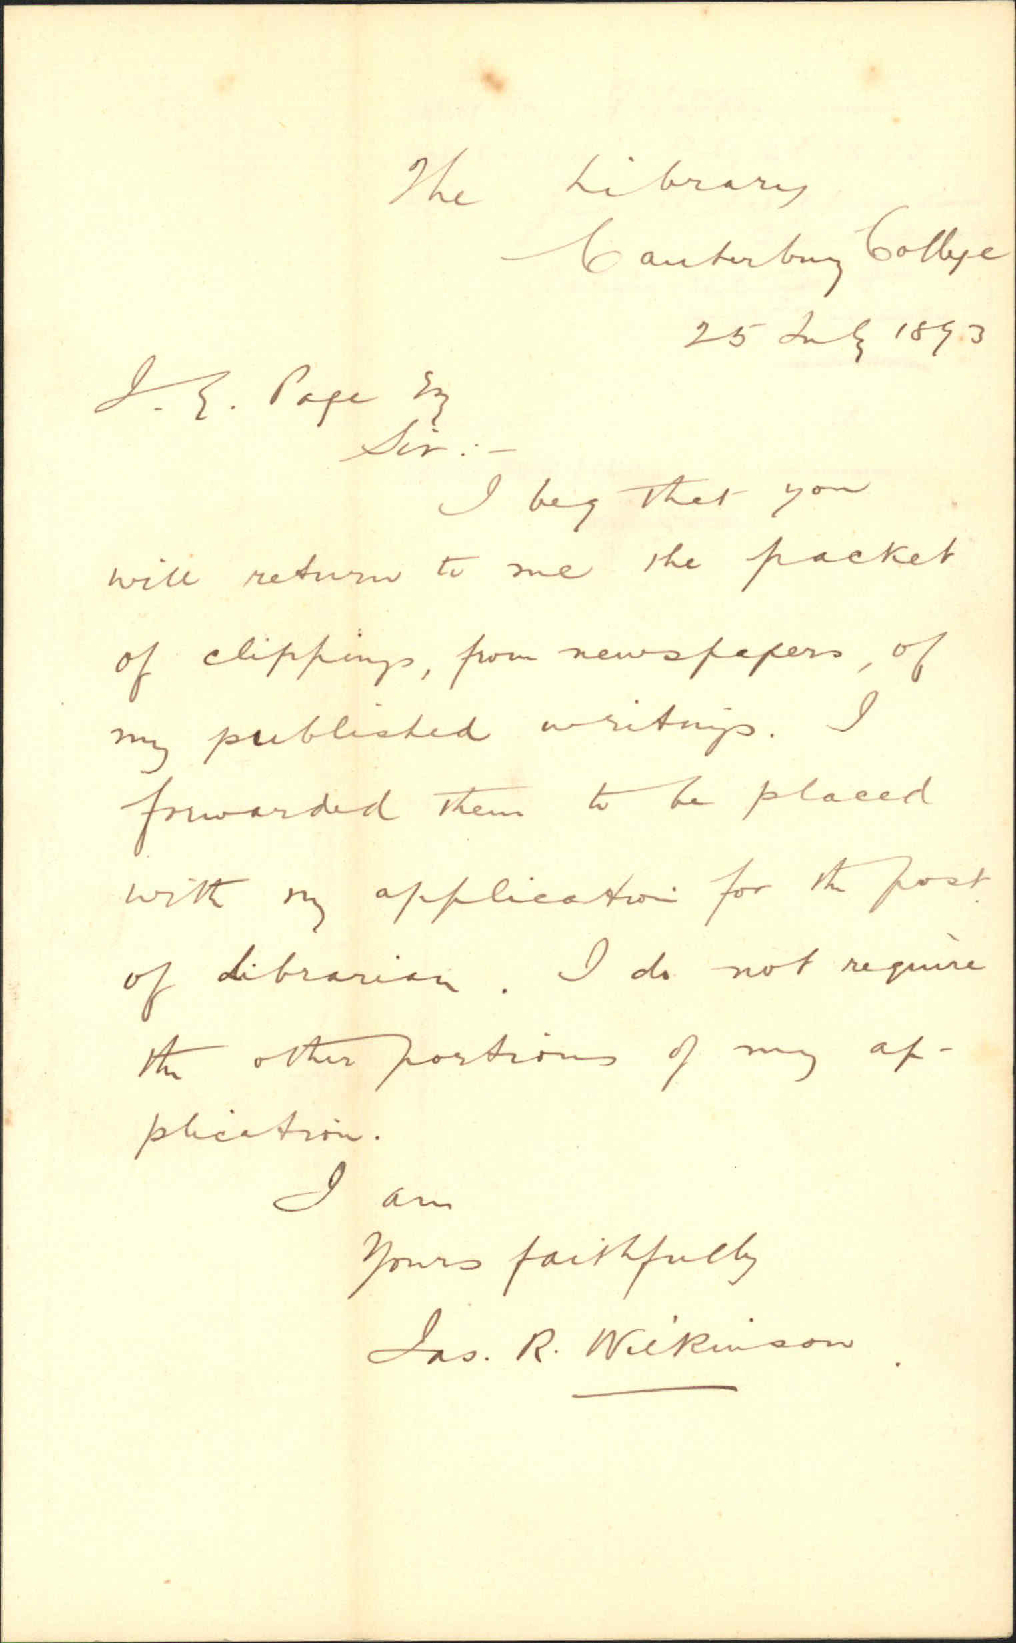 The Library
Canterbury College
25 July 1893
J. E. Page Esq
Sir:-
I beg that you
will return to me the packet
of clippings, from newspapers, of
my published writings. I
forwarded them to be placed
with my application for the post
of Librarian. I do not require
the other portions of my ap-
plication.
I am
Yours faithfully
Jas. R. Wilkinson.